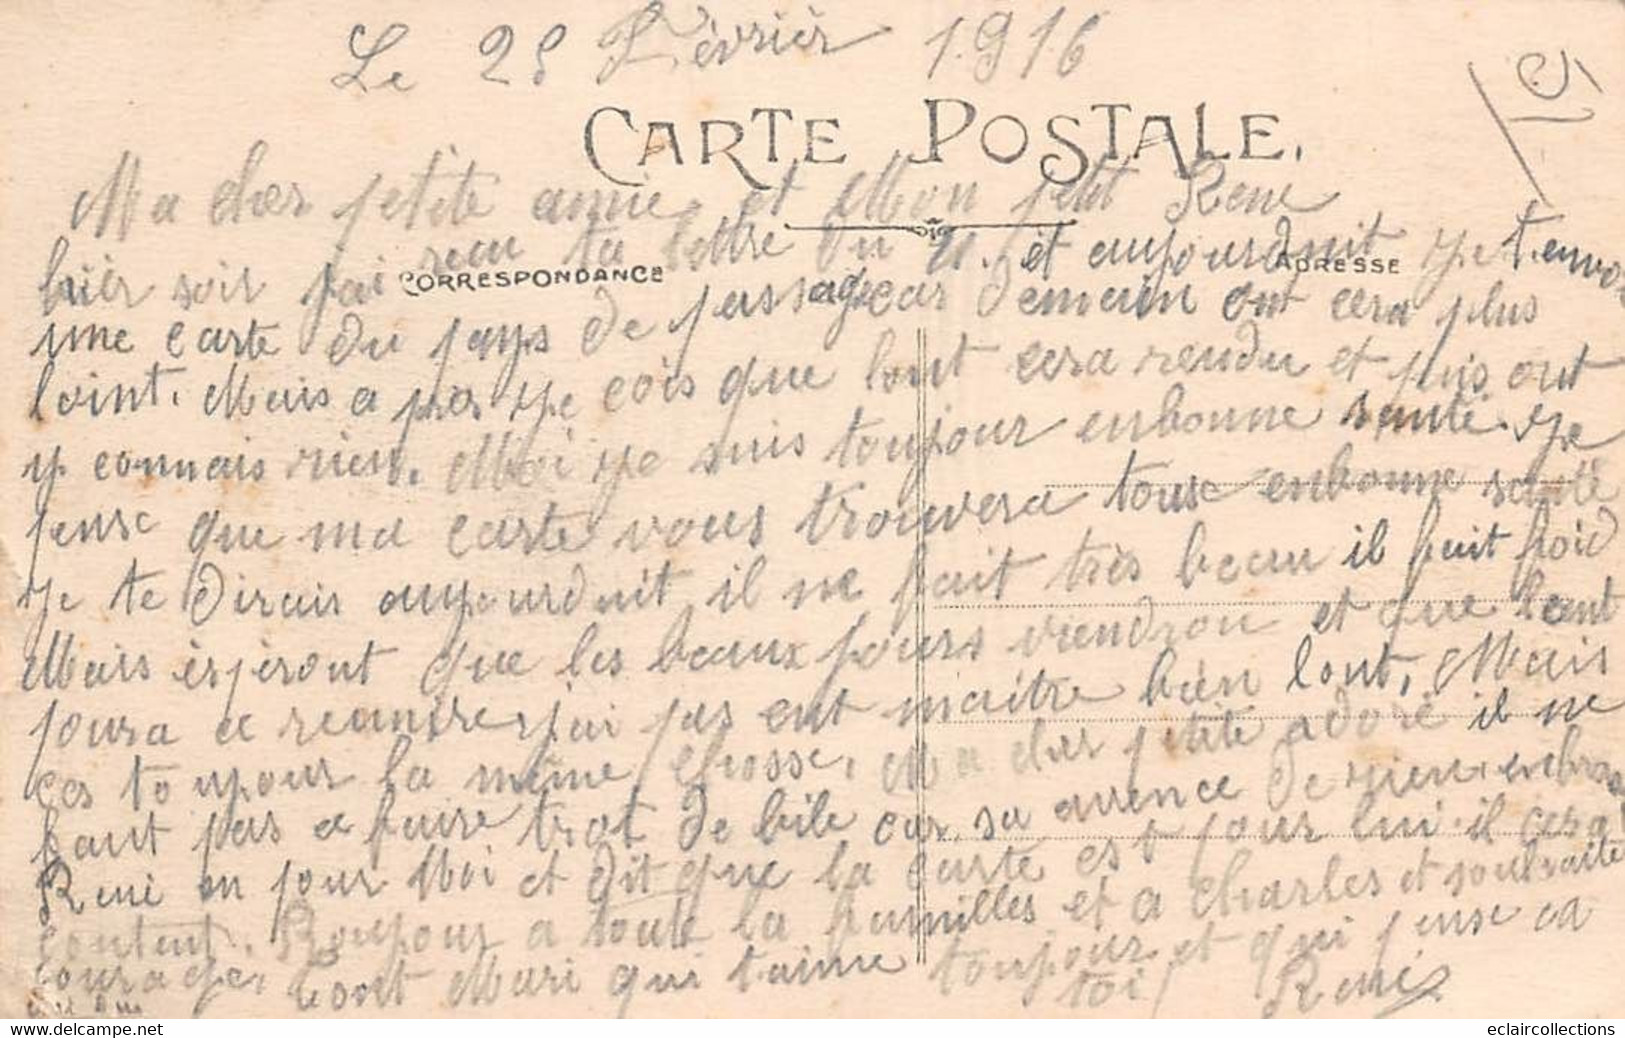 Le 25 Février 1916
CARTE POSTALE.
Ma cher petite amie et Mon petit Rene
hièr soir jai recu ta lettre du 21. et aujourduit je t'envoi
CORRESPONDANCE
ADRESSE
une carte du pays de passage car demain ont cera plus
loint. Mais a près je cois que tout cera rendu et puis ont
y connais rien. Moi je suis toujour enbonne santé. Je
pense que ma carte vous trouvera touse enbonne santé
Je te dirais aujourduit il ne fait très beau il fait froid
Mais èsperont que les beaux jours viendron et que
poura ce reantrer jai pas ent maitre bien lont, Mais
ces toujour la même chosse. Ma cher petite adoré il ne
faut pas ce faire trot de bile car sa avence de rien. enbras
René en pour Moi et dit que la carte est pour lui. il cera
content. Bonjour a toute la familles et a Charles et souhaite
courage. tont Mari qui t'aime toujour et qui pense a
toi René
eclaircollections